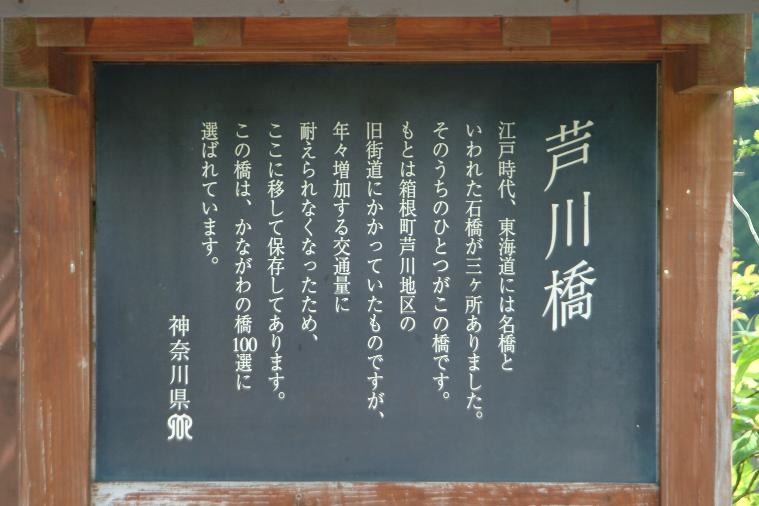 芦川橋
江戸時代、東海道には名橋と
いわれた石橋が三ヶ所ありました。
そのうちのひとつがこの橋です。
もとは箱根町芦川地区の
旧街道にかかっていたものですが、
年々増加する交通量に
耐えられなくなったため、
ここに移して保存してあります。
この橋は、かながわの橋100選に
選ばれています。
神奈川県